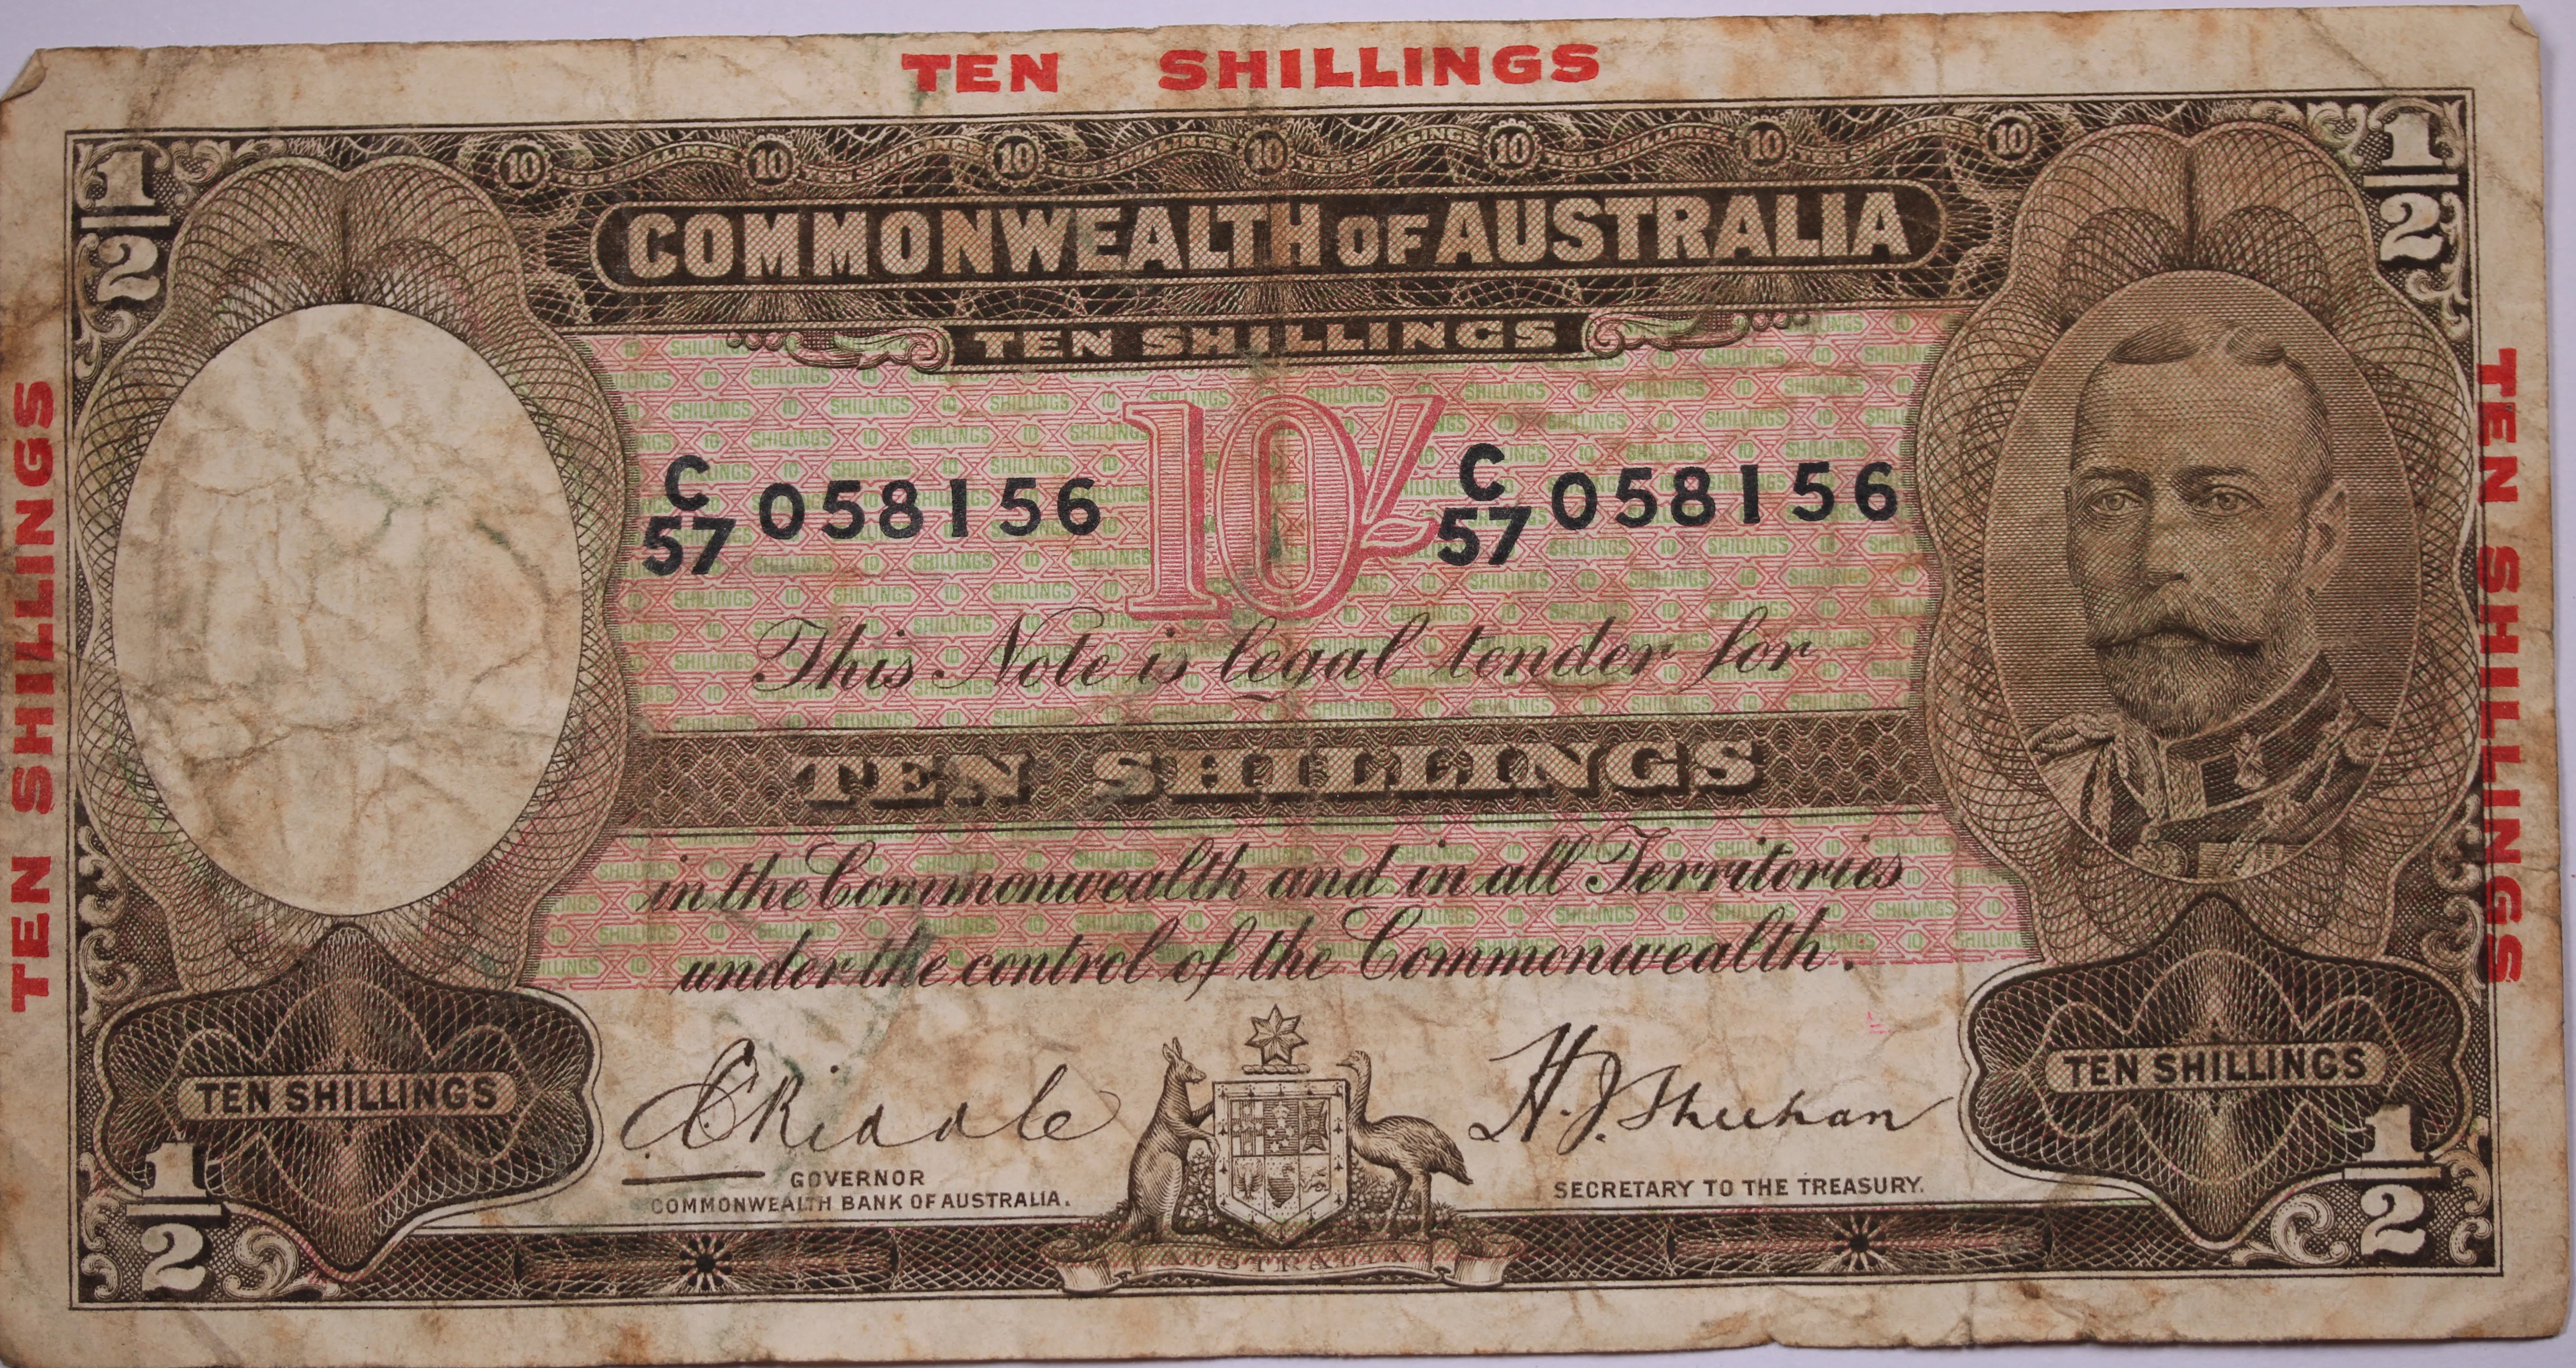 TEN SHILLINGS
1/2
1/2
10 10 10 10 10 10 10
COMMONWEALTH OF AUSTRALIA
TEN SHILLINGS
10/-
C/57 058156
C/57 058156
This Note is legal tender for
TEN SHILLINGS
in the Commonwealth and in all Territories
under the control of the Commonwealth.
TEN SHILLINGS
TEN SHILLINGS
TEN SHILLINGS
TEN SHILLINGS
E Riddle
GOVERNOR
COMMONWEALTH BANK OF AUSTRALIA.
H. J. Sheehan
SECRETARY TO THE TREASURY.
1/2
1/2
AUSTRALIA